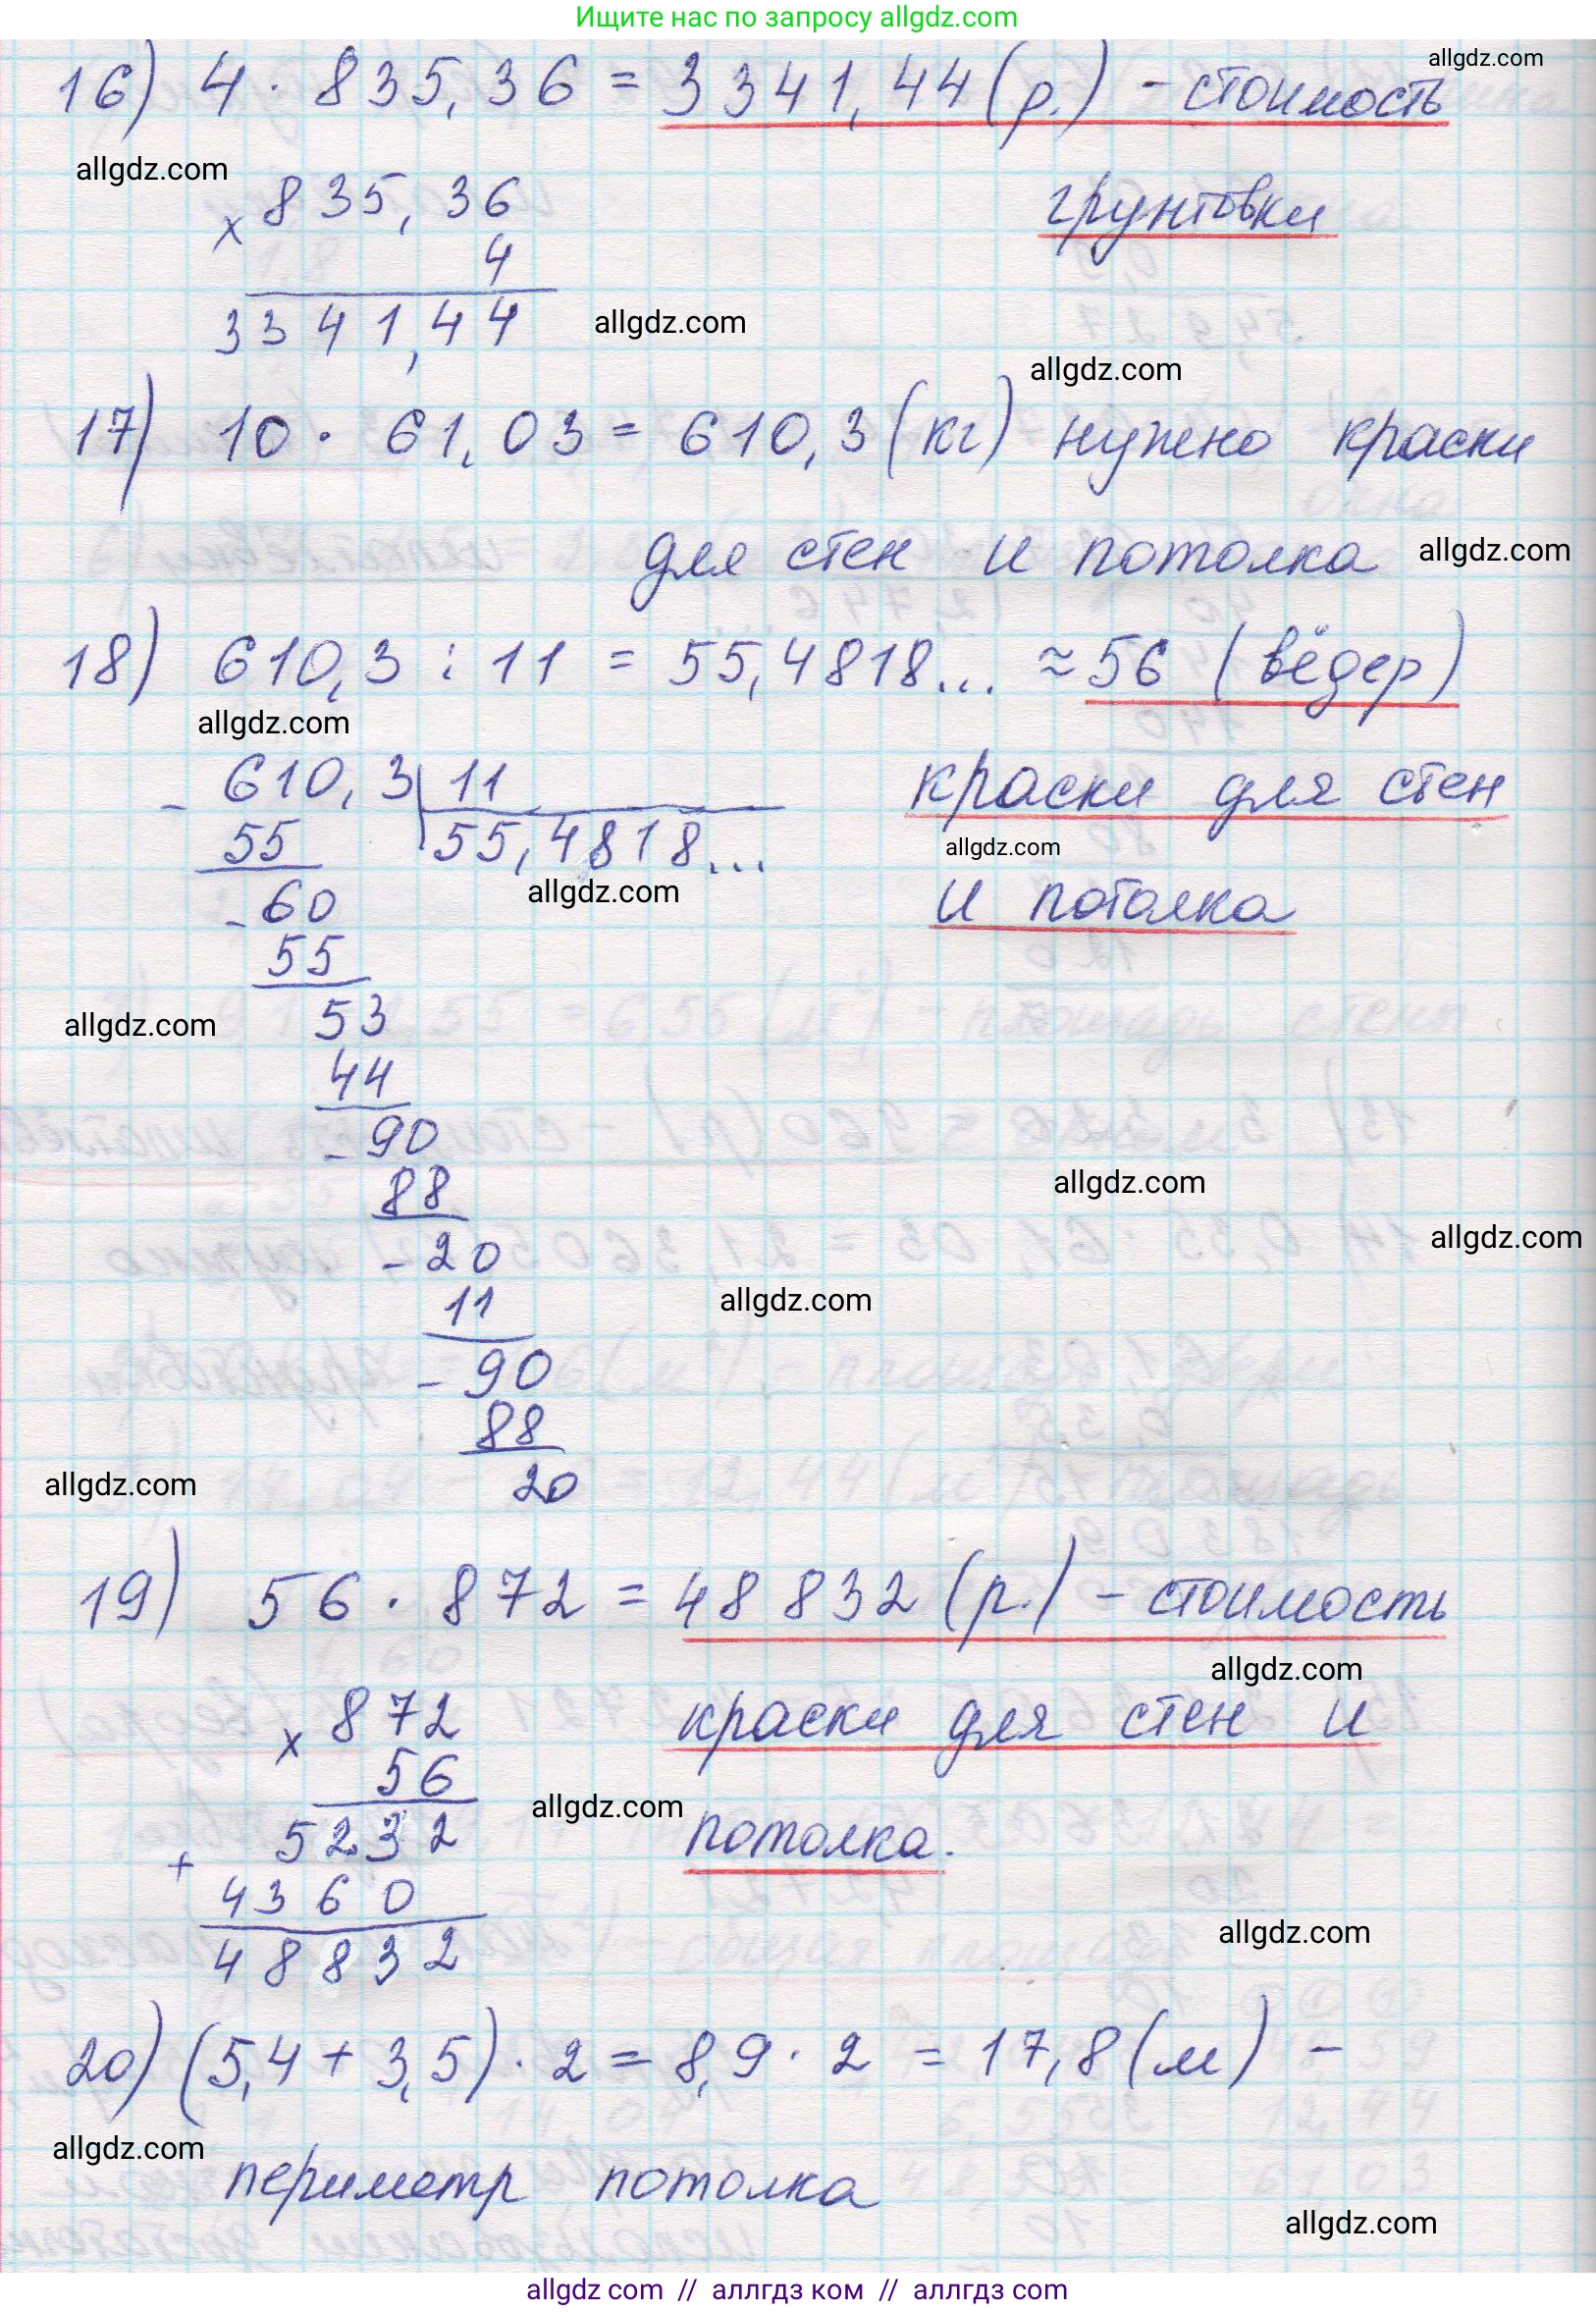 Ищите нас по запросу allgdz.com
allgdz.com
16) 4 · 835,36 = 3341,44 (р.) - стоимость
allgdz.com
грунтовки
× 835,36
4
3341,44
allgdz.com
allgdz.com
17) 10 · 61,03 = 610,3 (кг) нужно краски
для стен и потолка
allgdz.com
18) 610,3 : 11 = 55,4818... ≈ 56 (вёдер)
allgdz.com
краски для стен
allgdz.com
и потолка
- 610,3 | 11
55 55,4818...
allgdz.com
- 60
55
allgdz.com
53
44
- 90
88
allgdz.com
allgdz.com
- 20
11
allgdz.com
- 90
88
20
allgdz.com
19) 56 · 872 = 48 832 (р.) - стоимость
allgdz.com
краски для стен и
потолка.
× 872
56
allgdz.com
5232
+
4360
48832
allgdz.com
20) (5,4 + 3,5) · 2 = 8,9 · 2 = 17,8 (м) -
allgdz.com
периметр потолка
allgdz.com
allgdz com // аллгдз ком // allgdz com